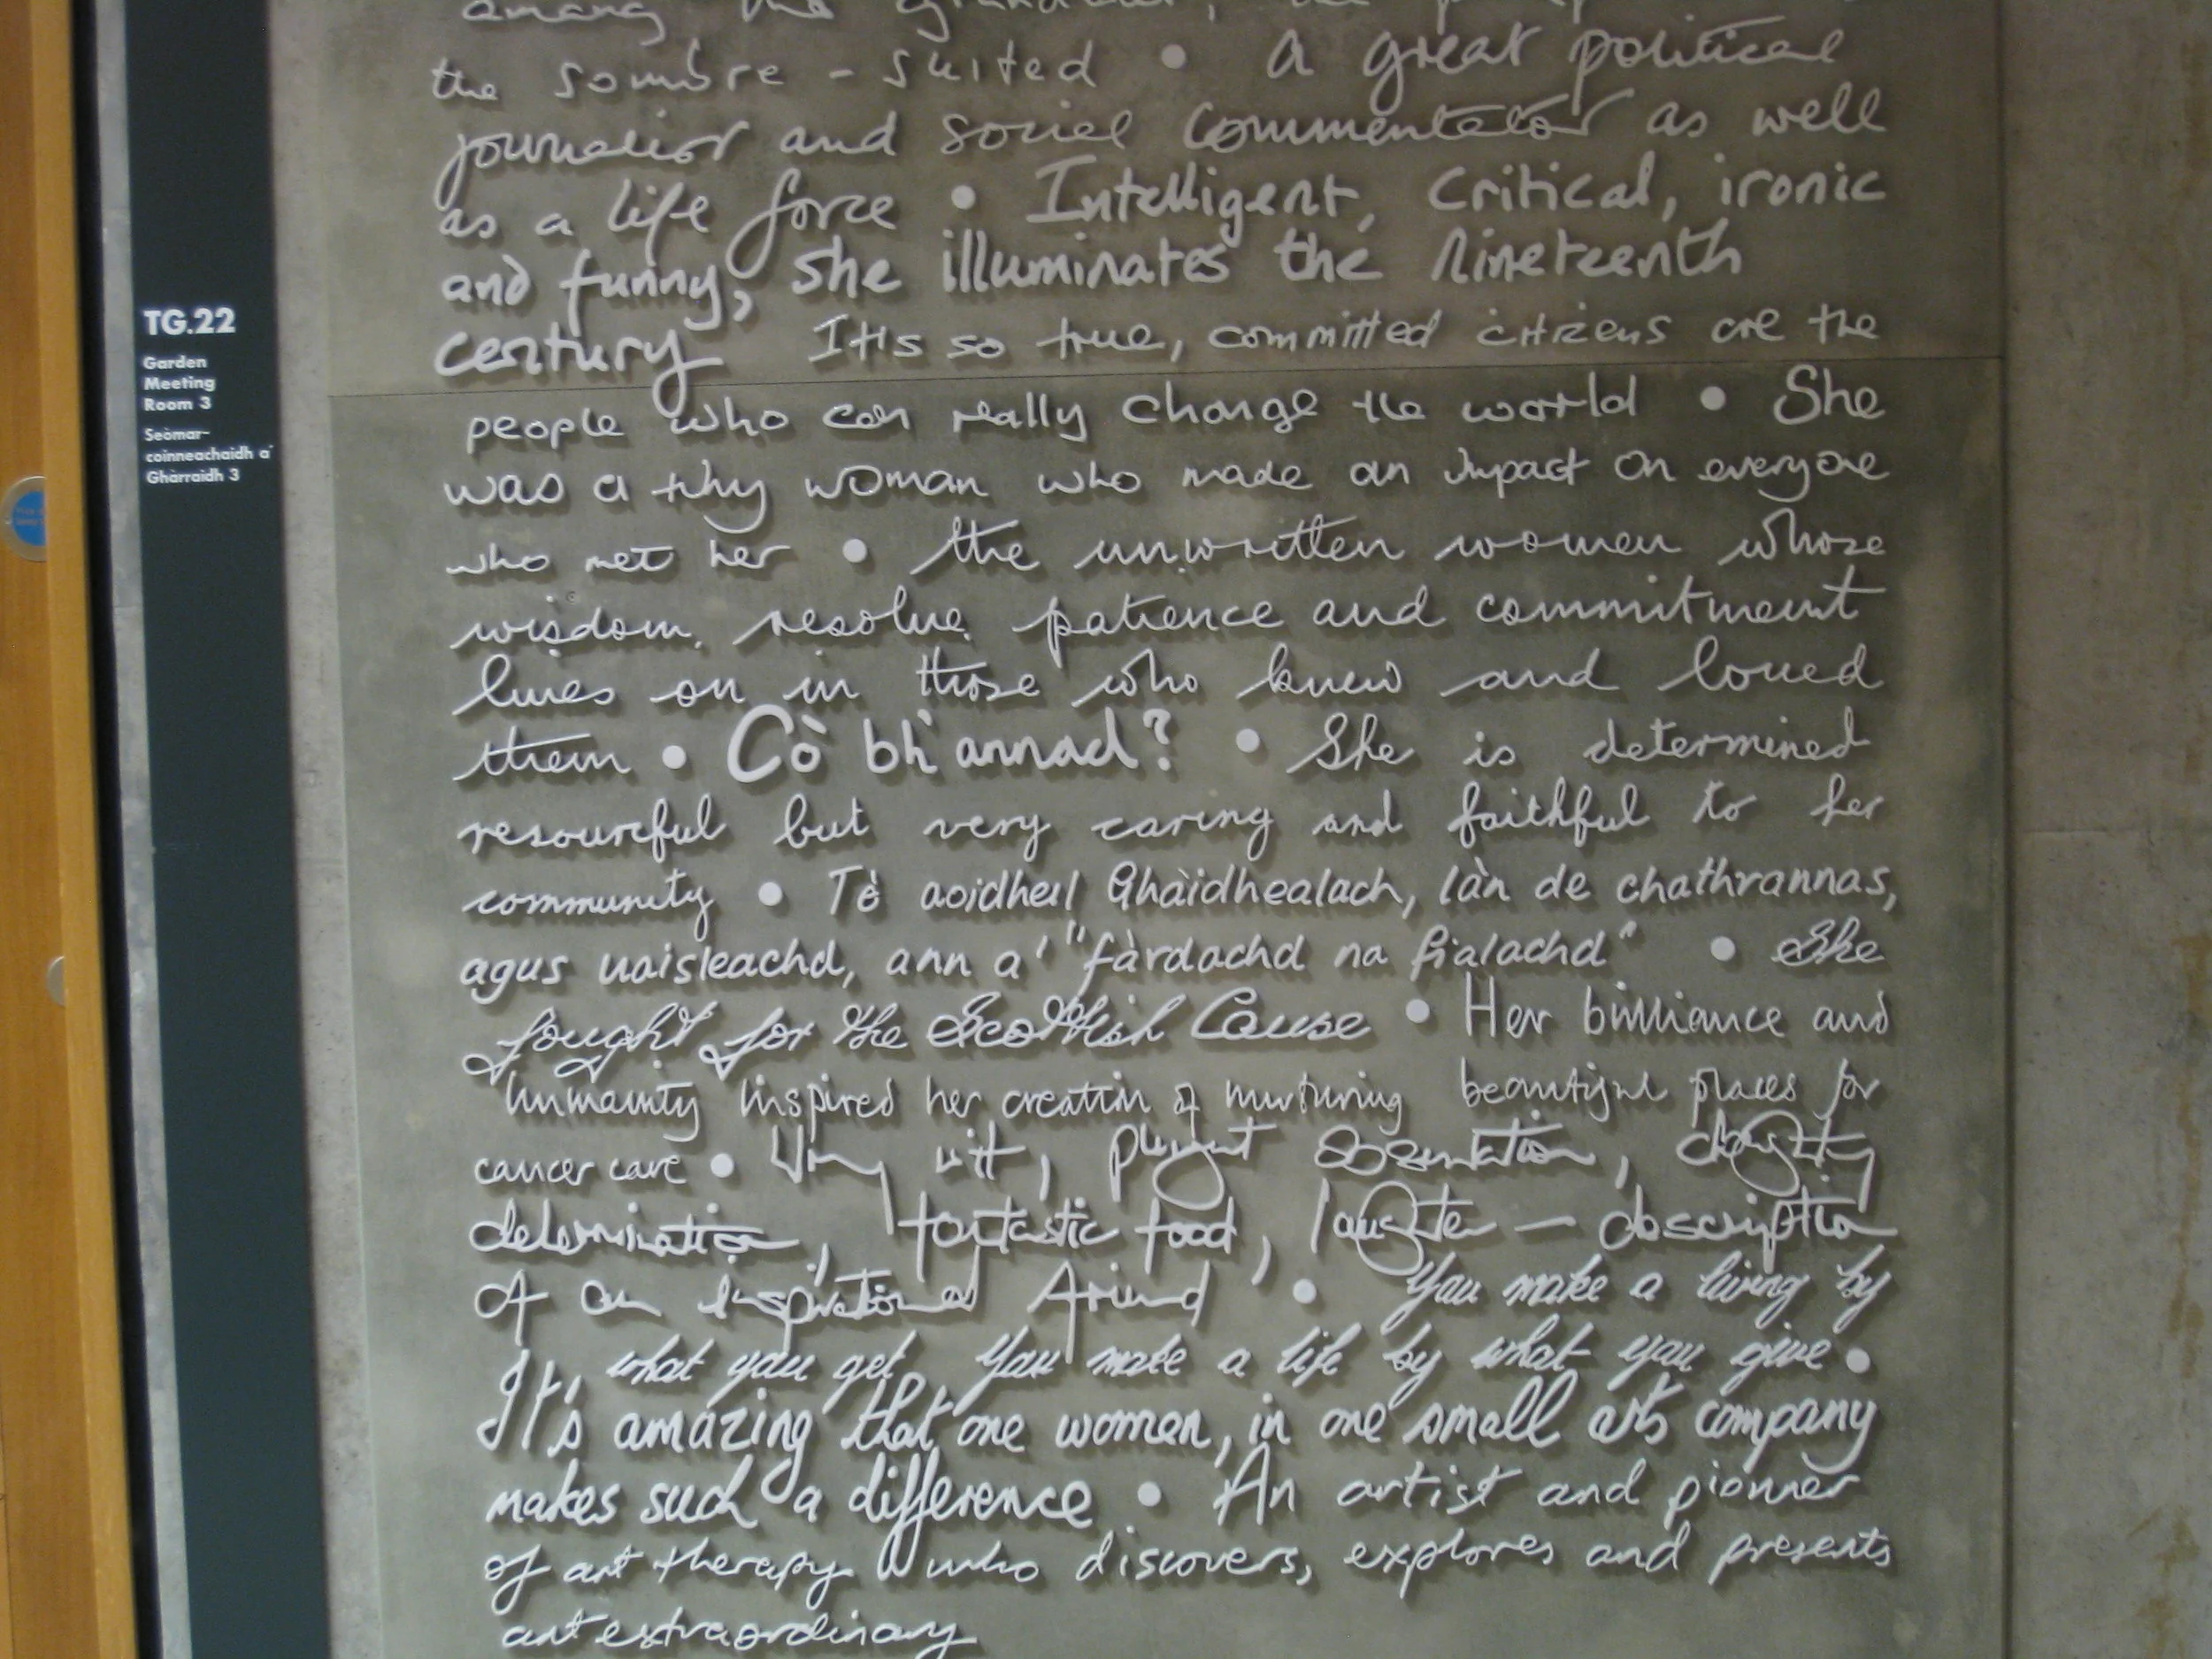 TG.22
Garden
Meeting
Room 3
Seòmar-
coinneachaidh a'
Ghàrraidh 3
among the
the sombre - suited • A great political
journalist and social commentator as well
as a life force • Intelligent, critical, ironic
and funny, she illuminates the nineteenth
century It's so true, committed citizens are the
people who can really change the world • She
was a tiny woman who made an impact on everyone
who met her • the unwritten women whose
wisdom, resolve, patience and commitment
lives on in those who knew and loved
them • Cò bh'annad? • She is determined
resourceful but very caring and faithful to her
community • Tè aoidheil Ghàidhealach, làn de chathrannas,
agus uaisleachd, ann a' "fàrdachd na fialachd" • She
fought for the Scottish Cause • Her brilliance and
humanity inspired her creation of nurturing beautiful places for
cancer care • wit, observation, doughty
determination, fantastic food, laughter — description
of an inspirational friend • You make a living by
what you get, you make a life by what you give •
It's amazing that one women, in one small arts company
makes such a difference • An artist and pioneer
of art therapy who discovers, explores and presents
art extraordinary